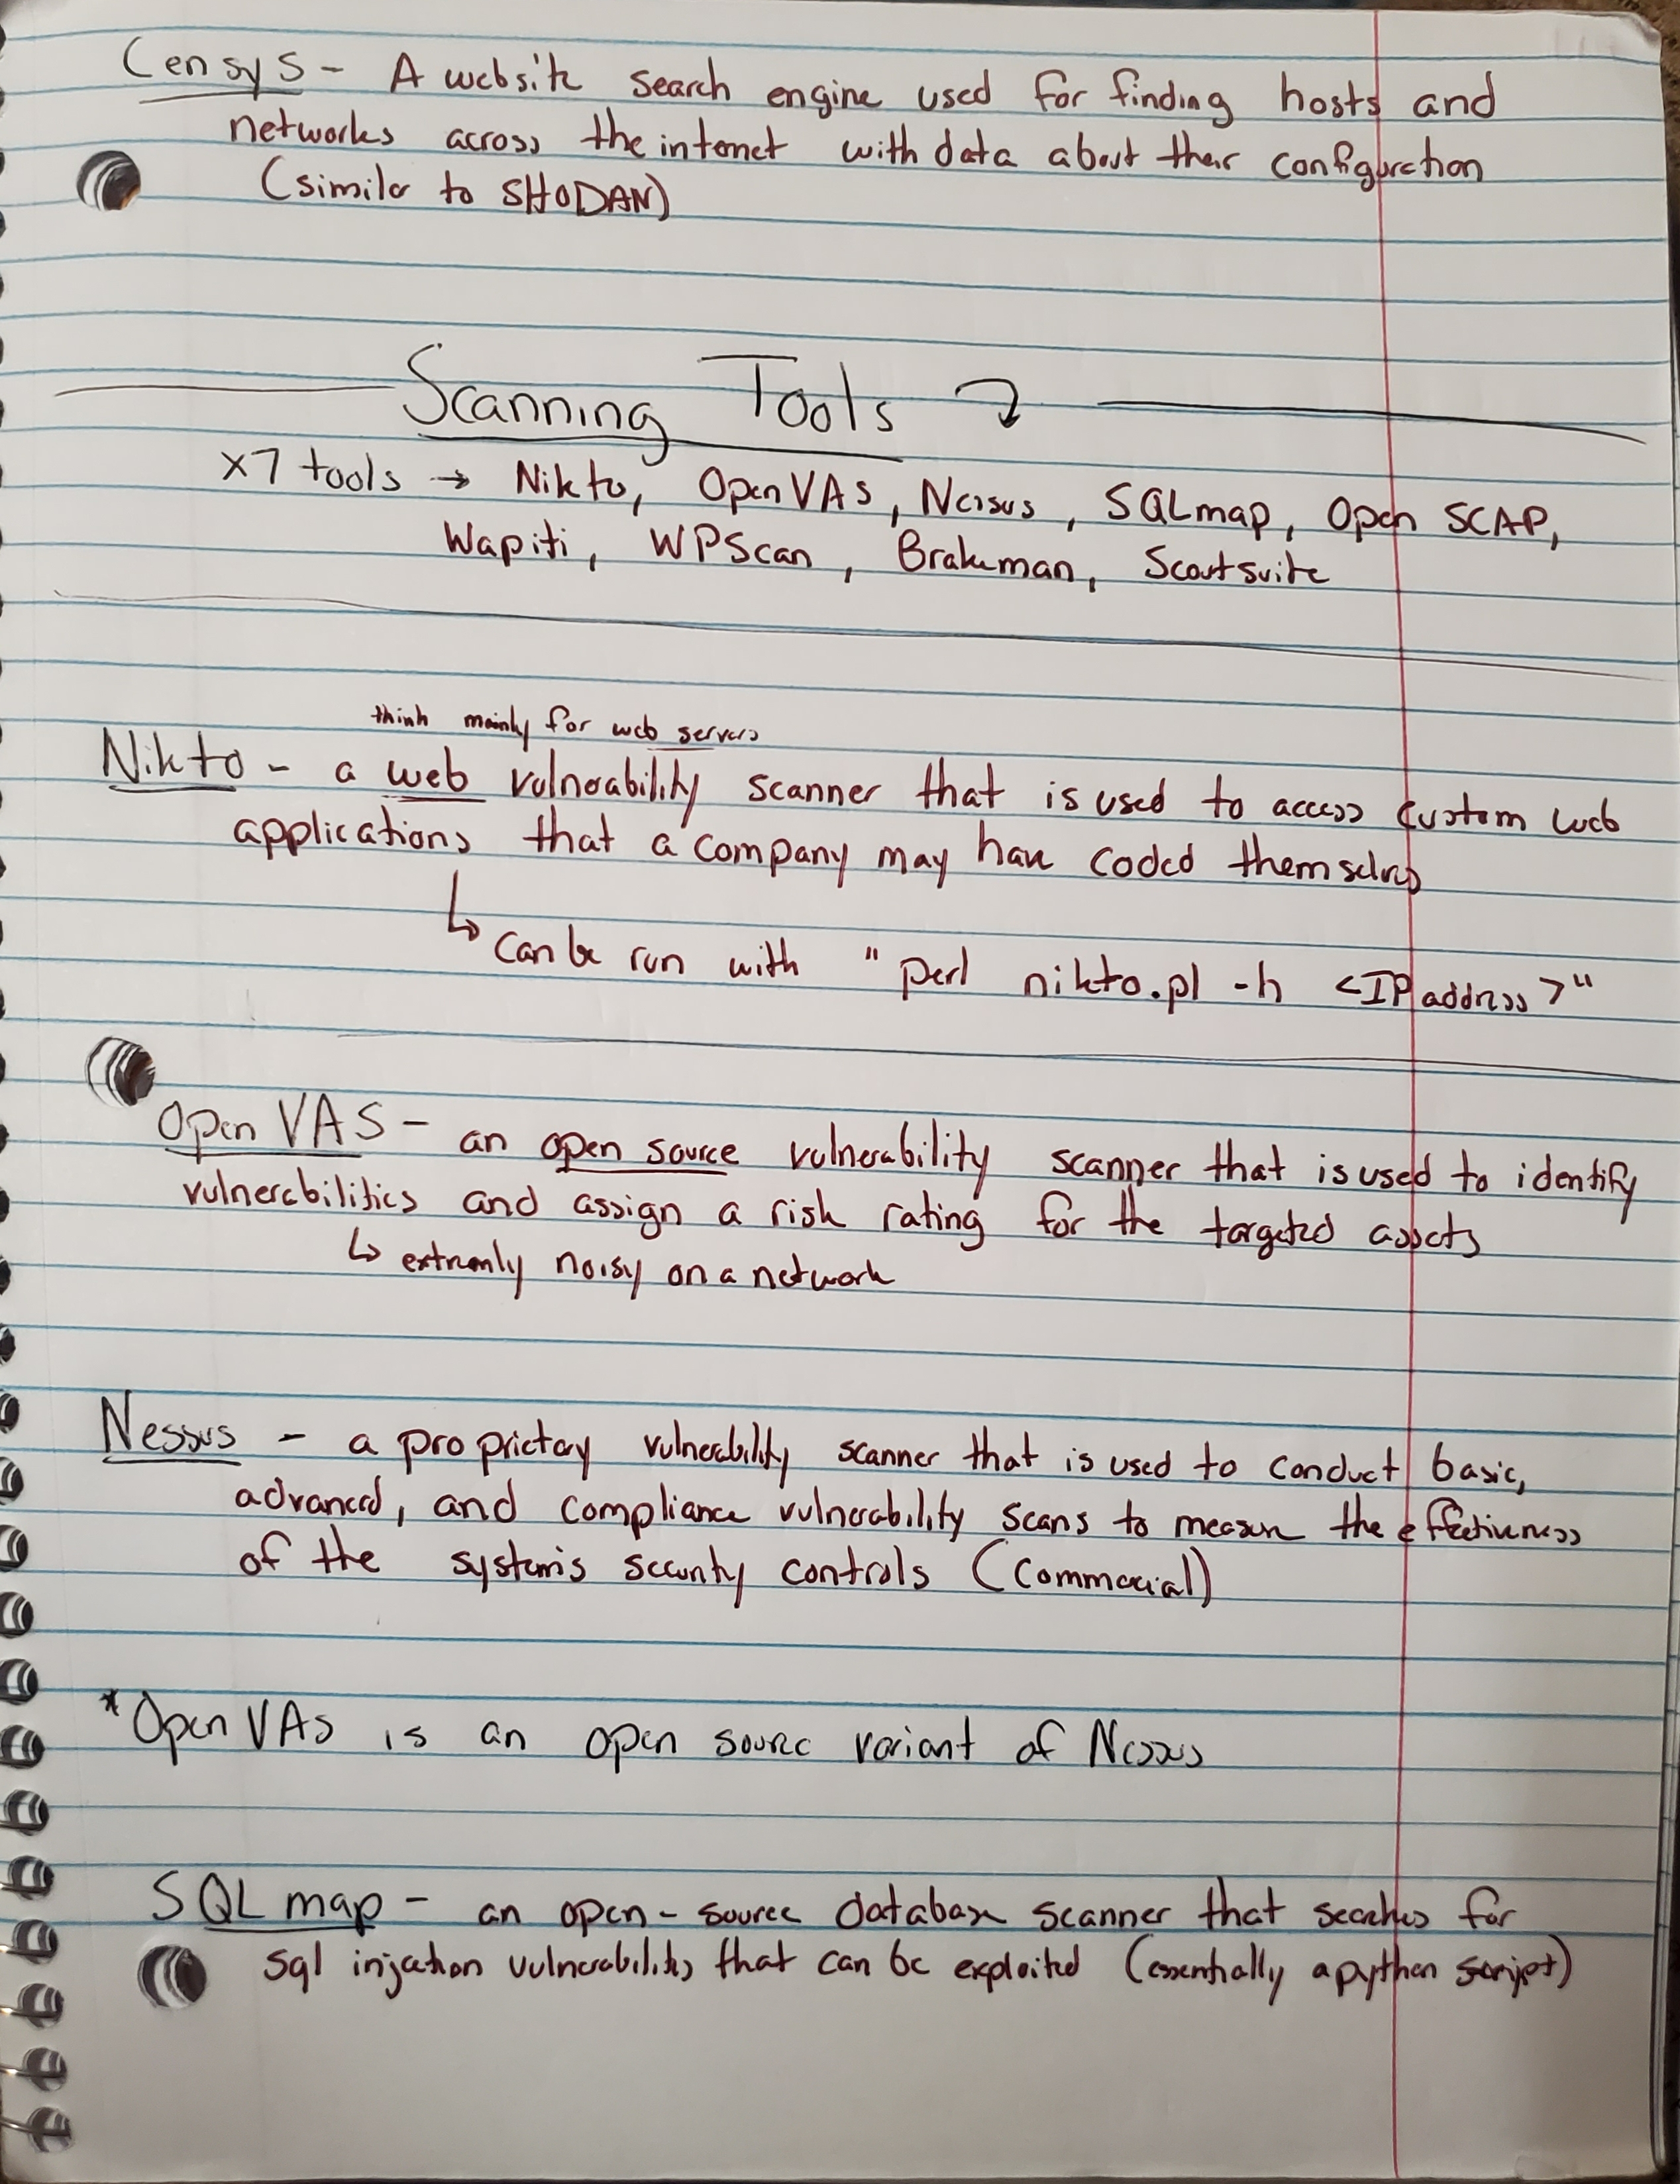 Censys - A website search engine used for finding hosts and
networks across the internet with data about their configuration
(similar to SHODAN)
Scanning Tools
x7 tools → Nikto, OpenVAS, Nessus, SQLmap, Open SCAP,
Wapiti, WPScan, Brakeman, Scoutsuite
think mainly for web servers
Nikto - a web vulnerability scanner that is used to access custom web
applications that a company may have coded themselves
↳ can be run with "perl nikto.pl -h <IP address>"
Open VAS - an open source vulnerability scanner that is used to identify
vulnerabilities and assign a risk rating for the targeted assets
↳ extremly noisy on a network
Nessus - a proprietary vulnerability scanner that is used to conduct basic,
advanced, and compliance vulnerability scans to measure the effectiveness
of the system's security controls (Commercial)
*Open VAS is an open source variant of Nessus
SQL map - an open-source database scanner that searches for
sql injection vulnerabilities that can be exploited (essentially a python script)